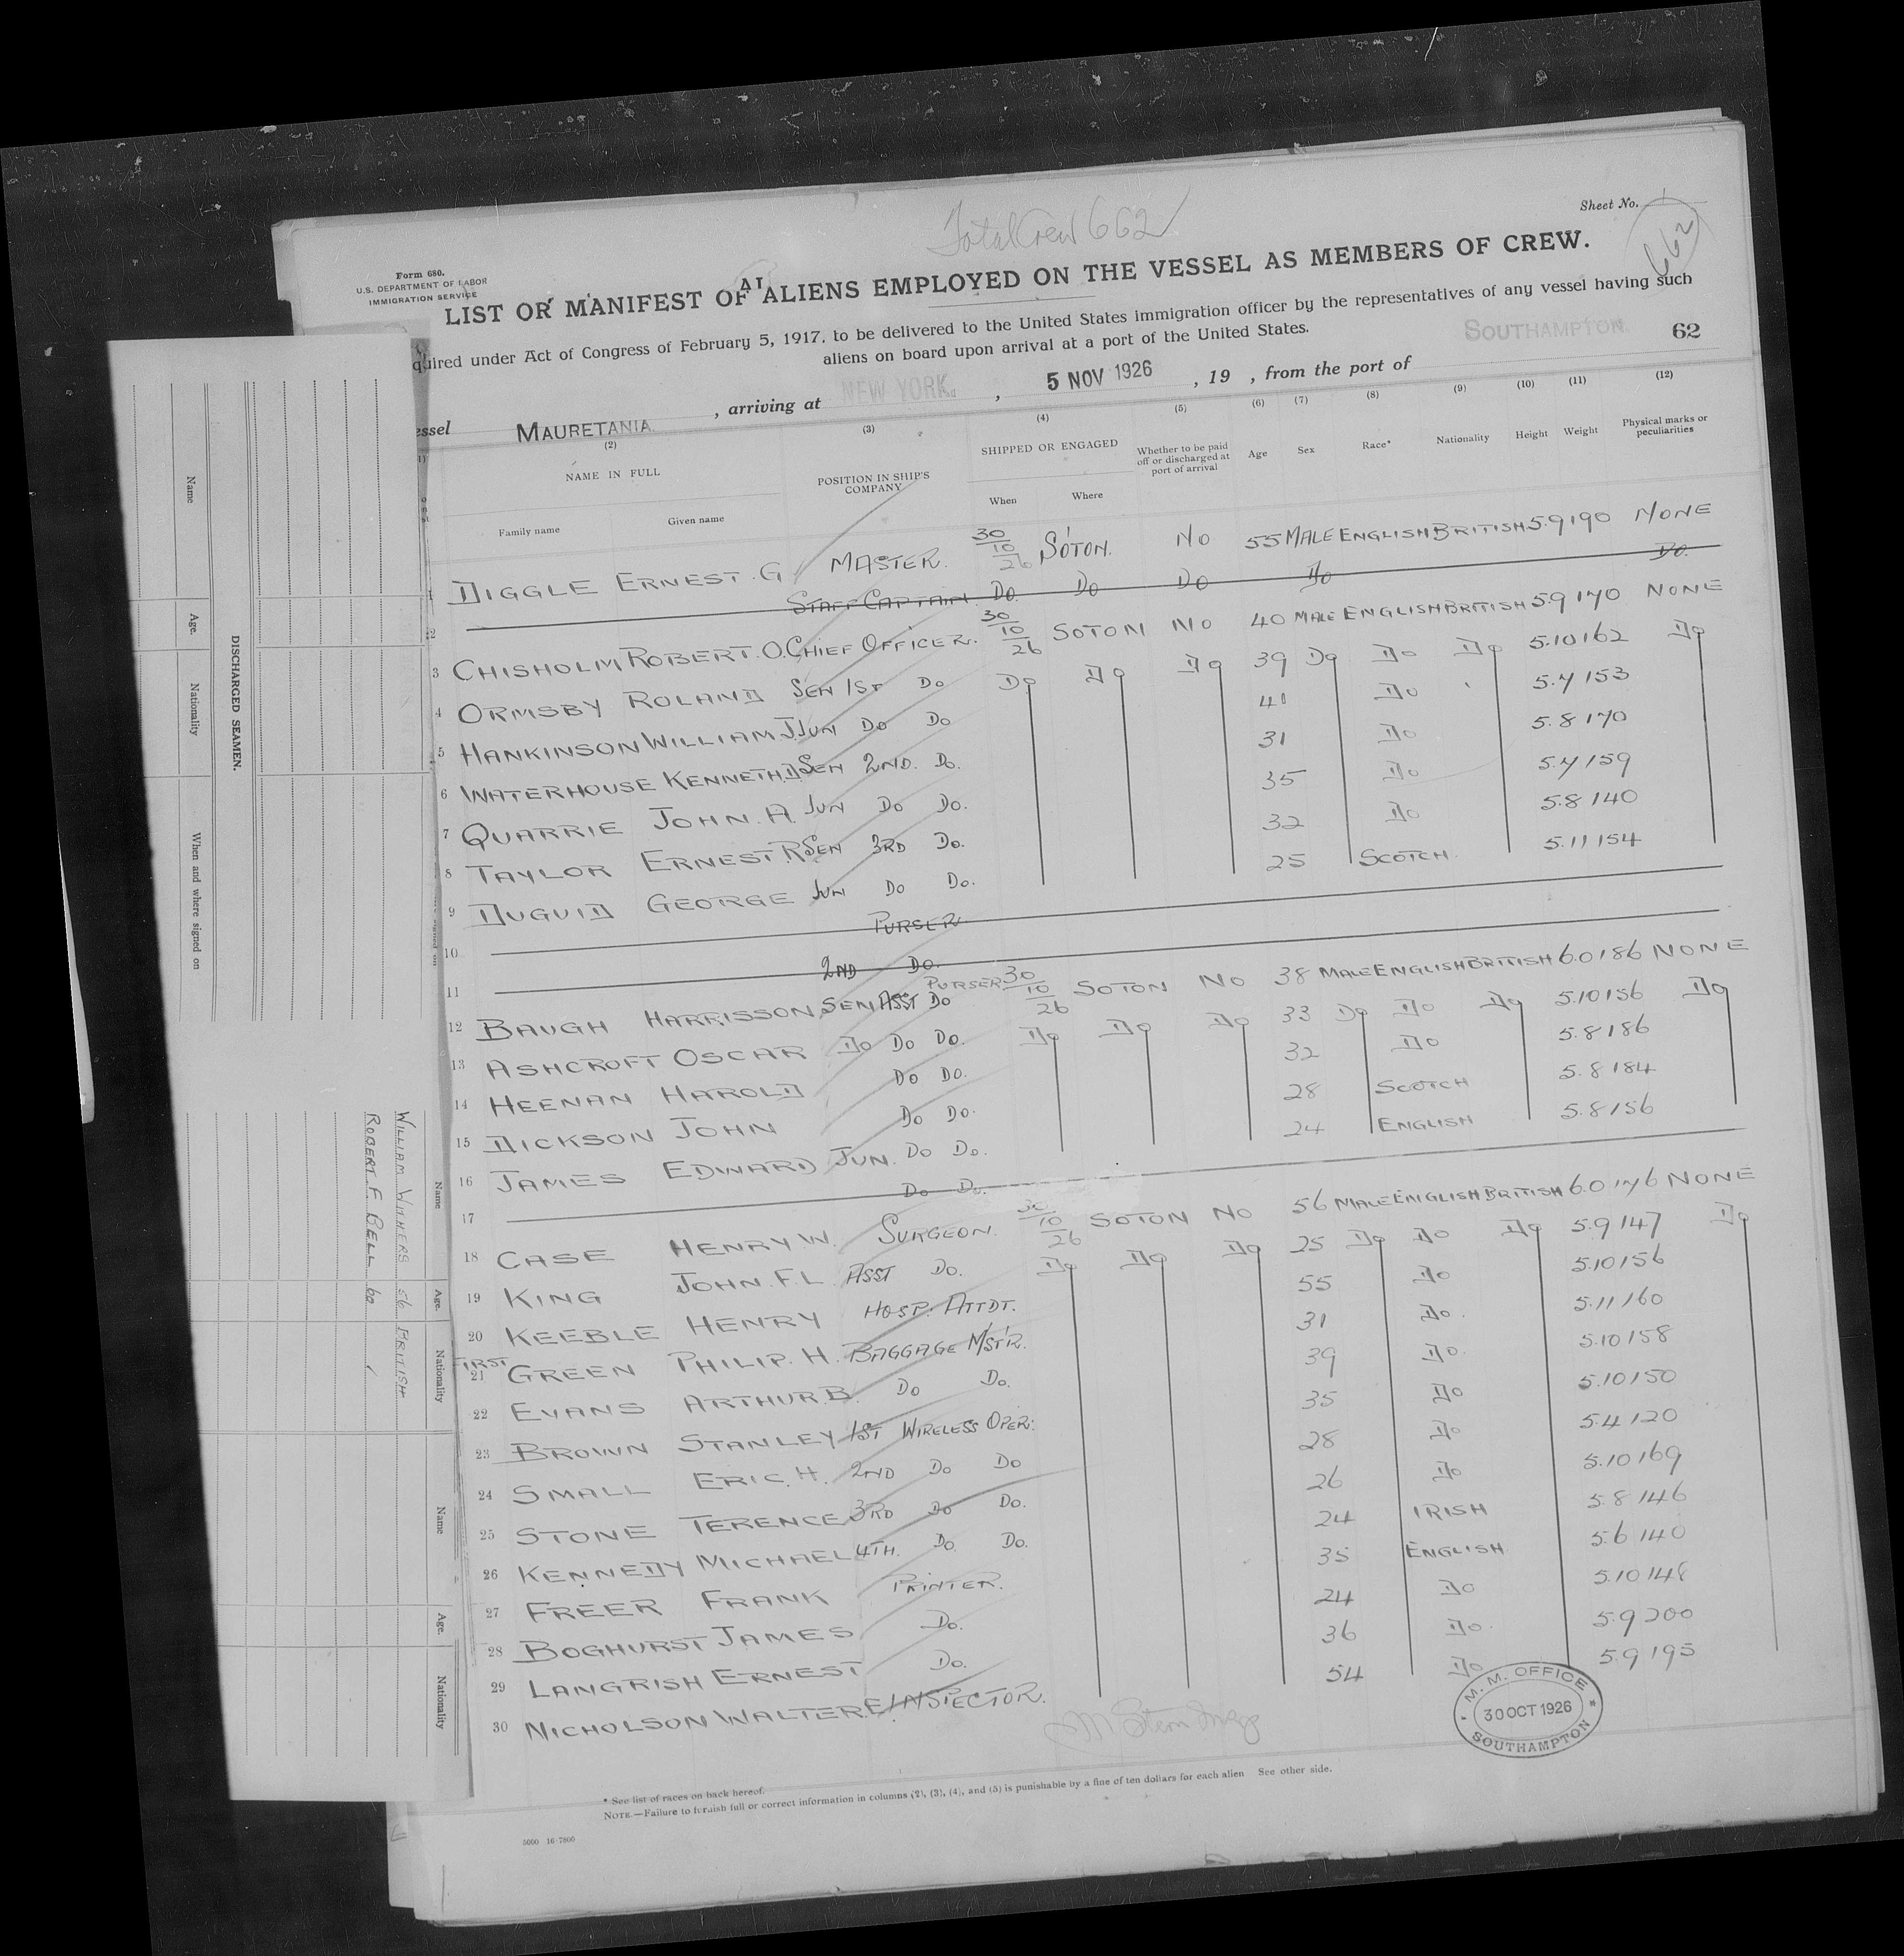 Total Crew 662
Sheet No. 1
662
Form 680.
U.S. DEPARTMENT OF LABOR
IMMIGRATION SERVICE
LIST OR MANIFEST OF ALIENS EMPLOYED ON THE VESSEL AS MEMBERS OF CREW.
quired under Act of Congress of February 5, 1917, to be delivered to the United States immigration officer by the representatives of any vessel having such
aliens on board upon arrival at a port of the United States.
62
essel MAURETANIA. , arriving at NEW YORK. , 5 NOV 1926 , 19 , from the port of SOUTHAMPTON.
(2) (3) (4) (5) (6) (7) (8) (9) (10) (11) (12)
NAME IN FULL POSITION IN SHIP'S COMPANY SHIPPED OR ENGAGED Whether to be paid off or discharged at port of arrival Age Sex Race* Nationality Height Weight Physical marks or peculiarities
Family name Given name When Where
1 DIGGLE ERNEST. G MASTER. 30/10/26 SOTON. NO 55 MALE ENGLISH BRITISH 5.9 190 NONE
2 STAFF CAPTAIN DO. DO DO DO DO.
3 CHISHOLM ROBERT. O. CHIEF OFFICER. 30/10/26 SOTON NO 40 MALE ENGLISH BRITISH 5.9 170 NONE
4 ORMSBY ROLAND SEN 1ST DO DO DO DO 39 DO DO DO 5.10 162 DO
5 HANKINSON WILLIAM J. JUN DO DO 40 DO 5.7 153
6 WATERHOUSE KENNETH. D SEN 2ND. DO. 31 DO 5.8 170
7 QUARRIE JOHN. A. JUN DO DO. 35 DO 5.7 159
8 TAYLOR ERNEST. R. SEN 3RD DO. 32 DO 5.8 140
9 DUGUID GEORGE JUN DO DO. 25 SCOTCH. 5.11 154
10 PURSER
11 2ND DO.
12 BAUGH HARRISSON. SEN ASST DO PURSER 30/10/26 SOTON NO 38 MALE ENGLISH BRITISH 6.0 186 NONE
13 ASHCROFT OSCAR DO DO DO. DO DO DO 33 DO DO DO 5.10 156 DO
14 HEENAN HAROLD DO DO. 32 DO 5.8 186
15 DICKSON JOHN DO DO. 28 SCOTCH 5.8 184
16 JAMES EDWARD JUN. DO DO. 24 ENGLISH 5.8 156
17 DO DO.
18 CASE HENRY W. SURGEON. 30/10/26 SOTON NO 56 MALE ENGLISH BRITISH 6.0 176 NONE
19 KING JOHN. F. L. ASST DO. DO DO DO 25 DO DO DO 5.9 147 DO
20 KEEBLE HENRY HOSP. ATTDT. 55 DO 5.10 156
FIRST
21 GREEN PHILIP. H. BAGGAGE M'ST'R. 31 DO. 5.11 160
22 EVANS ARTHUR. B. DO DO. 39 DO. 5.10 158
23 BROWN STANLEY 1ST WIRELESS OPER: 35 DO 5.10 150
24 SMALL ERIC. H. 2ND DO DO 28 DO 5.4 120
25 STONE TERENCE 3RD DO DO. 26 DO 5.10 169
26 KENNEDY MICHAEL 4TH. DO. DO. 24 IRISH 5.8 146
27 FREER FRANK PRINTER. 35 ENGLISH 5.6 140
28 BOGHURST JAMES DO. 24 DO 5.10 148
29 LANGRISH ERNEST DO. 36 DO. 5.9 200
30 NICHOLSON WALTER. E. INSPECTOR. 54 DO 5.9 195
M. M. OFFICE
30 OCT 1926
SOUTHAMPTON
* See list of races on back hereof.
NOTE.—Failure to furnish full or correct information in columns (2), (3), (4), and (5) is punishable by a fine of ten dollars for each alien See other side.
5000 16-7800
DISCHARGED SEAMEN.
Name Age. Nationality When and where signed on
Name Age. Nationality Name Age. Nationality
WILLIAM WITHERS 56 BRITISH
ROBERT. F. BELL 60